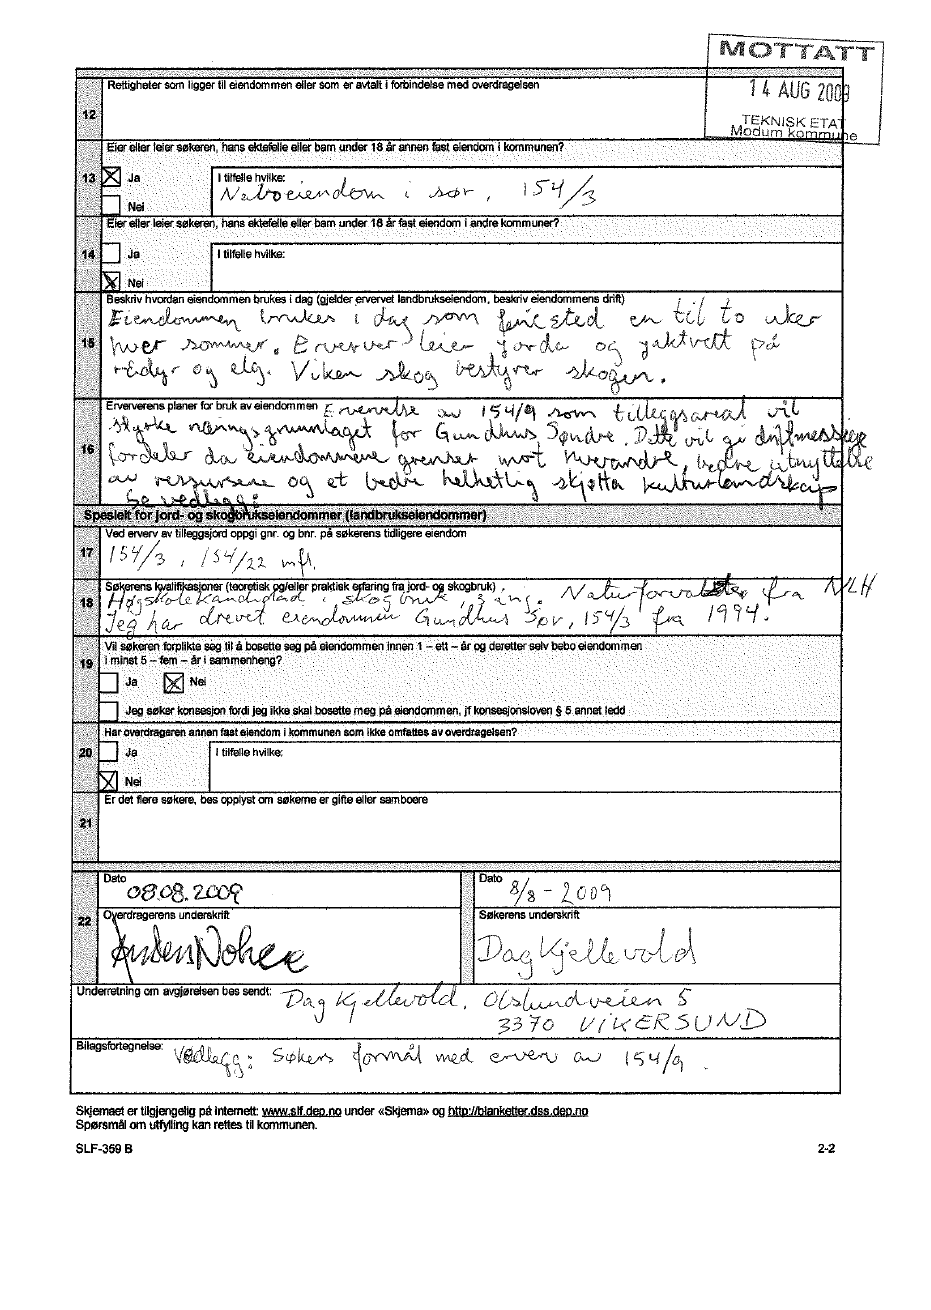 MOTTATT
14 AUG 2009
TEKNISK ETAT
Modum kommune
12 Rettigheter som ligger til eiendommen eller som er avtalt i forbindelse med overdragelsen
Eier eller leier søkeren, hans ektefelle eller barn under 18 år annen fast eiendom i kommunen?
13 Ja
I tilfelle hvilke:
Naboeiendom i sør, 154/3
Nei
Eier eller leier søkeren, hans ektefelle eller barn under 18 år fast eiendom i andre kommuner?
14 Ja
I tilfelle hvilke:
Nei
Beskriv hvordan eiendommen brukes i dag (gjelder ervervet landbrukseiendom, beskriv eiendommens drift)
Eiendommen brukes i dag som feriested en til to uker
15 hver sommer. Erverver leier jorda og jaktrett på
rådyr og elg. Viken skog bestyrer skogen.
Erververens planer for bruk av eiendommen Ervervelse av 154/9 som tilleggsareal vil
styrke næringsgrunnlaget for Gundhus Søndre. Dette vil gi driftmessige
16 fordeler da eiendommene grenser mot hverandre, bedre utnyttelse
av ressursene og et bedre helhetlig skjøtta kulturlandskap
Se vedlegg!
Spesielt for jord- og skogbrukseiendommer (landbrukseiendommer)
Ved erverv av tilleggsjord oppgi gnr. og bnr. på søkerens tidligere eiendom
17 154/3, 154/22 mfl.
Søkerens kvalifikasjoner (teoretisk og/eller praktisk erfaring fra jord- og skogbruk)
18 Høgskolekandidat i skogbruk, 3 ång. Naturforvalter fra NLH
Jeg har drevet eiendommen Gundhus Sør, 154/3 fra 1994.
Vil søkeren forplikte seg til å bosette seg på eiendommen innen 1 – ett – år og deretter selv bebo eiendommen
19 i minst 5 – fem – år i sammenheng?
Ja Nei
Jeg søker konsesjon fordi jeg ikke skal bosette meg på eiendommen, jf konsesjonsloven § 5 annet ledd
Har overdrageren annen fast eiendom i kommunen som ikke omfattes av overdragelsen?
20 Ja
I tilfelle hvilke:
Nei
Er det flere søkere, bes opplyst om søkerne er gifte eller samboere
21
Dato
08.08.2009
Dato
8/8 - 2009
22 Overdragerens underskrift
Søkerens underskrift
Dag Kjellevold
Underretning om avgjørelsen bes sendt: Dag Kjellevold, Olslundveien 5
3370 VIKERSUND
Bilagsfortegnelse: Vedlegg: Søkers formål med erverv av 154/9.
Skjemaet er tilgjengelig på Internett: www.slf.dep.no under «Skjema» og http://blanketter.dss.dep.no
Spørsmål om utfylling kan rettes til kommunen.
SLF-359 B 2-2